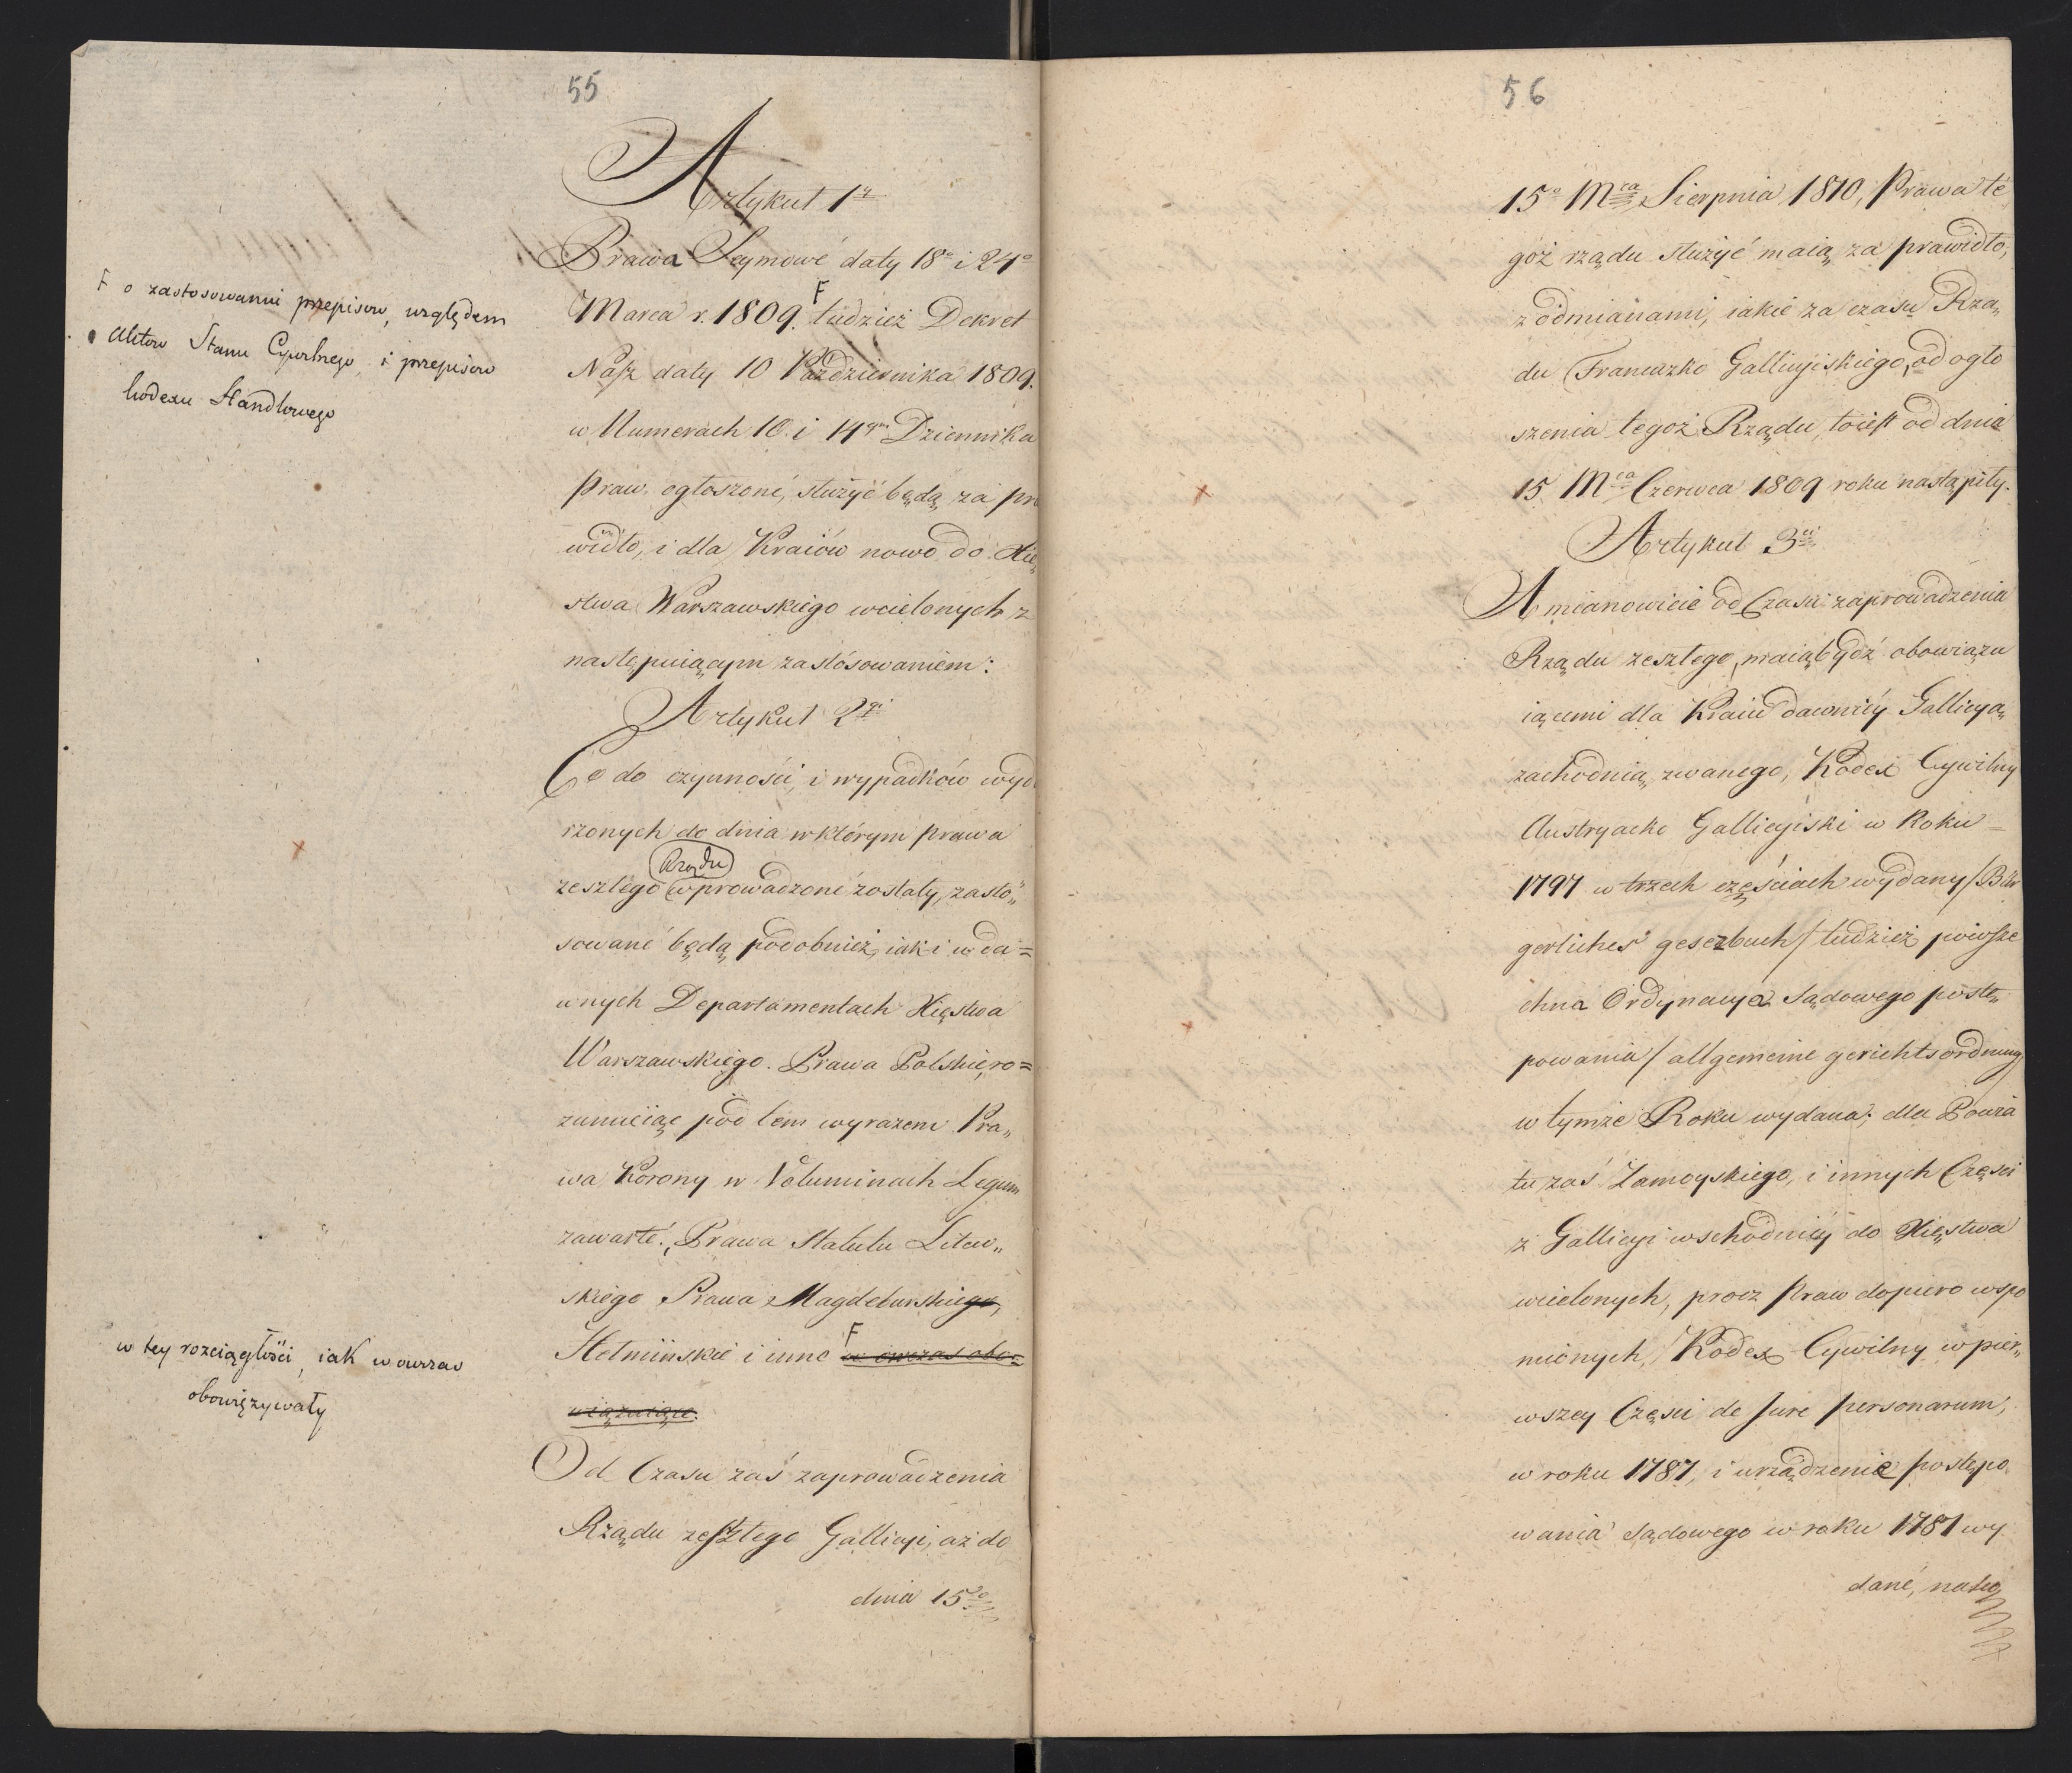 55
Artykuł 1y
Prawa Seymowé daty 18o i 24o
Marca r. 1809. F tudzież Dekret
Nasz daty 10 Października 1809.
w Numerach 10. i 14ym Dziennika
Praw. ogłoszoné, służyć będą za pra
widło, i dla Kraiów nowo do Xię
stwa Warszawskiego wcielonych z
następuiącym zastósowaniem:
F o zastosowaniu przepisow, względem
Aktow Stanu Cywilnego i przepisow
kodexu Handlowego
Artykuł 2gi
Co do czynności, i wypadków wyda
rzonych do dnia w którym prawa
zeszłégo Rządu wprowadzoné zostały, zasto„
sowané będą podobnież, iak i w da=
wnych Departamentach Xięstwa
Warszawskiégo. Prawa Polskie, ro=
zumieiąc pod tem wyrazem Pra„
wa Korony w Voluminach Legum
zawarté, Prawa Statutu Litew„
skiego Prawa Magdeburskiego,
Hełmińskié i inne F w ówczas obo=
wiązuiące.
w tey rozciągłości, iak wowczas
obowięzywały
Od Czasu zaś zaprowadzenia
Rządu zeszłego Gallicyi, aż do
dnia 15go
56
15o Mca Sierpnia 1810, Prawa té
goż rządu służyć maią za prawidło,
z odmianami, iakié za czasu Rzą„
du Francuzko Gallicyiskiego, od ogło
szenia tegoż Rządu, toiest od dnia
15 Mca Czerwca 1809 roku nastąpiły.
Artykuł 3ci
A mianowicié od Czasu zaprowadzenia
Rządu zeszłego, maią bydź obowiązu
iącemi dla Kraiu dawniéy Gallicyą„
zachodnią zwanego, Kodex Cywilny
Austryacko Gallicyiski w Roku =
1797 w trzech częściach wydany /Bür
gerliches gesezbuch/ tudzież powsze
chna Ordynacya Sądowego postę„
powania / allgemeine gerichtsordnung/
w tymże Roku wydana; dla Powia
tu zaś Zamoyskiego, i innych Części
z Gallicyi wschodniéy do Xięstwa
wcielonych, procz Praw dopiero wspo
mnionych, Kodex Cywilny w pier„
wszey Części de Jure personarum,
w roku 1787, i urządzenie postępo
wania Sądowego w roku 1781 wy
dané, należą